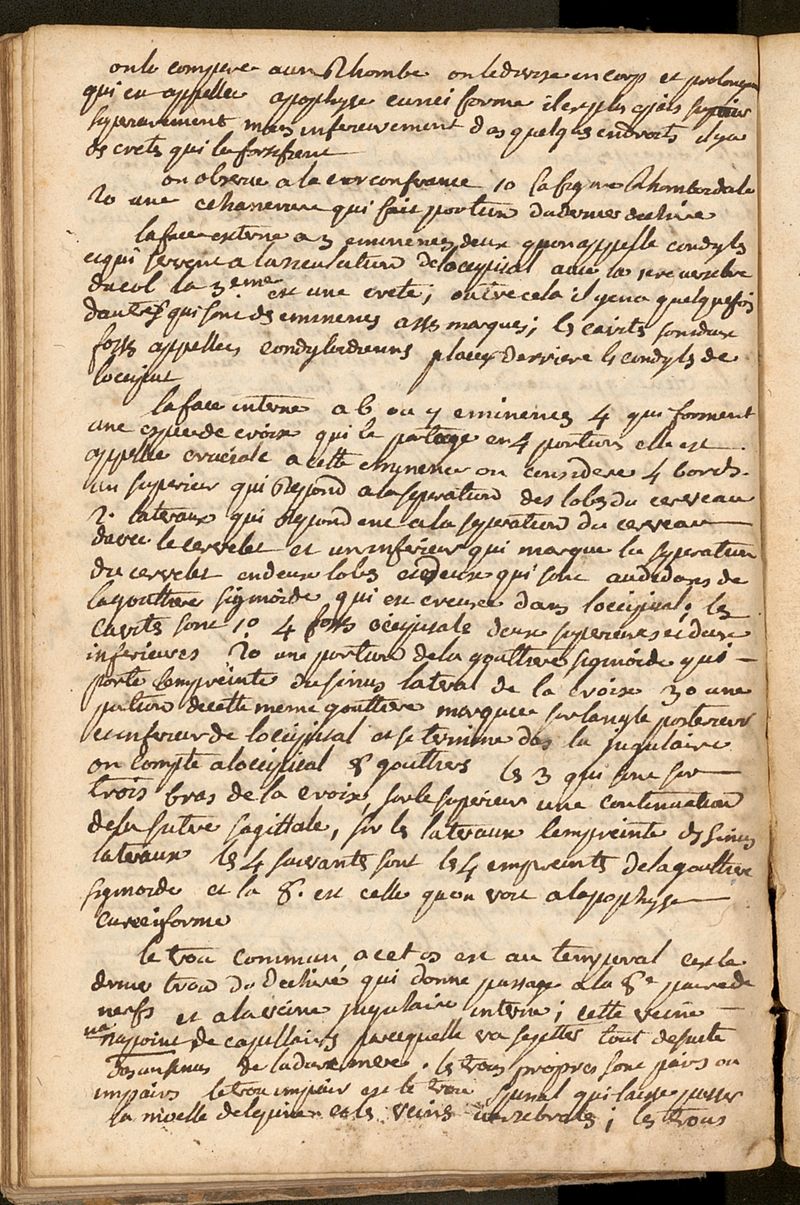 on le compare a un Rhombe on le divise en corp et prolongem
qui en appellee apophyse cuneiforme il est plus epais
superieurement mais inferieurement dos quelqes endroits il y a
des crets qui le fortifient
on observe a la circonferance 1o sa figure Rhomboidale
2o une echancrure qui fait portion du dernier dechiré
la face externe a 3 eminences deux qu'on appelle condyls
et qui servent a larticulation de loccipital avec la 1ere vertebre
du col la 3eme est une crete; outre cela il y en a quelquefois
dautres qui sont ds eminences asses marques; ls cavités sont deux
fosses appellees condyloidienns placeés derriere ls condyls de
loccipit
la face interne a 6 ou 7 eminences 4 qui forment
une espece de croix qui la partage en 4 portions elle est
appellé cruciale a cette eminence on considere 4 bords
un superieur qui Repond a la separation des lobes du cerveau
2. lateraux qui repondent a la separation du cerveau
davec le cervelet et un inferieur qui marque la separation
du cervelet en deux lobes et deux qui sont audedans de
la gouttiere sigmoide qui est creusée dans loccipital; les
cavités sont 1o 4 fosses occipitale deux superieures et deux
inferieures 2o une portion de la gouttiere sigmoide qui
porte lempreinte du sinus lateral de la croix 3o une
portion de cette meme gouttiere marquee sur langle posterieur
et inferieur de loccipital et se termine dos la jugulaire
on compte a loccipital 8 gouttiers ls 3 qui sont sur
trois bras de la croix, sur le superieur une continuation
de la suture sagittale, sur ls lateraux lempreinte ds sinus
lateraux ls 4 suivants sont ls 4 empreints de la gouttiere
sigmoide et la 8. est celle quon voit a lapophyse
cuneiforme
le trou commun a cet os est au temporal cest le
dernier trou du Dechiré qui donne passage a la 8e paire de
nerfs et a la veine jugulaire interne; cette veine
na point de capillairs parcequelle va se jetter tout de suite
dos un sinus de la dure mere. ls trous propres sont pairs ou
impairs le trou impair est le trou spinal qui laisse passer
la moelle de lepine et ls veins vertebrals; les trous